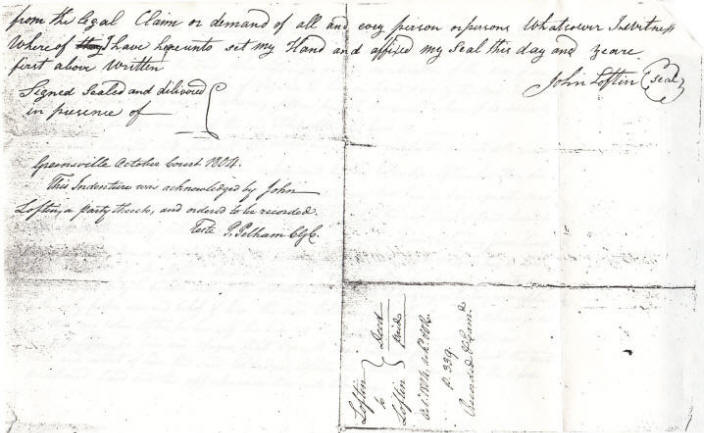 from the legal Claim or demand of all and evry person or persons Whatsoever In Witness
Where of I have hereunto set my Hand and affixed my Seal this day and yeare
first above Written
John Loftin (seal)
Signed Sealed and delivered
in presence of
Greensville October Court 1804.
This Indenture was acknowledged by John
Loftin, a party thereto, and ordered to be recorded.
Teste P. Pelham ClGC.
Loftin
to
Loftin
Deed
paid
p. 339.
Recorded & Examd.